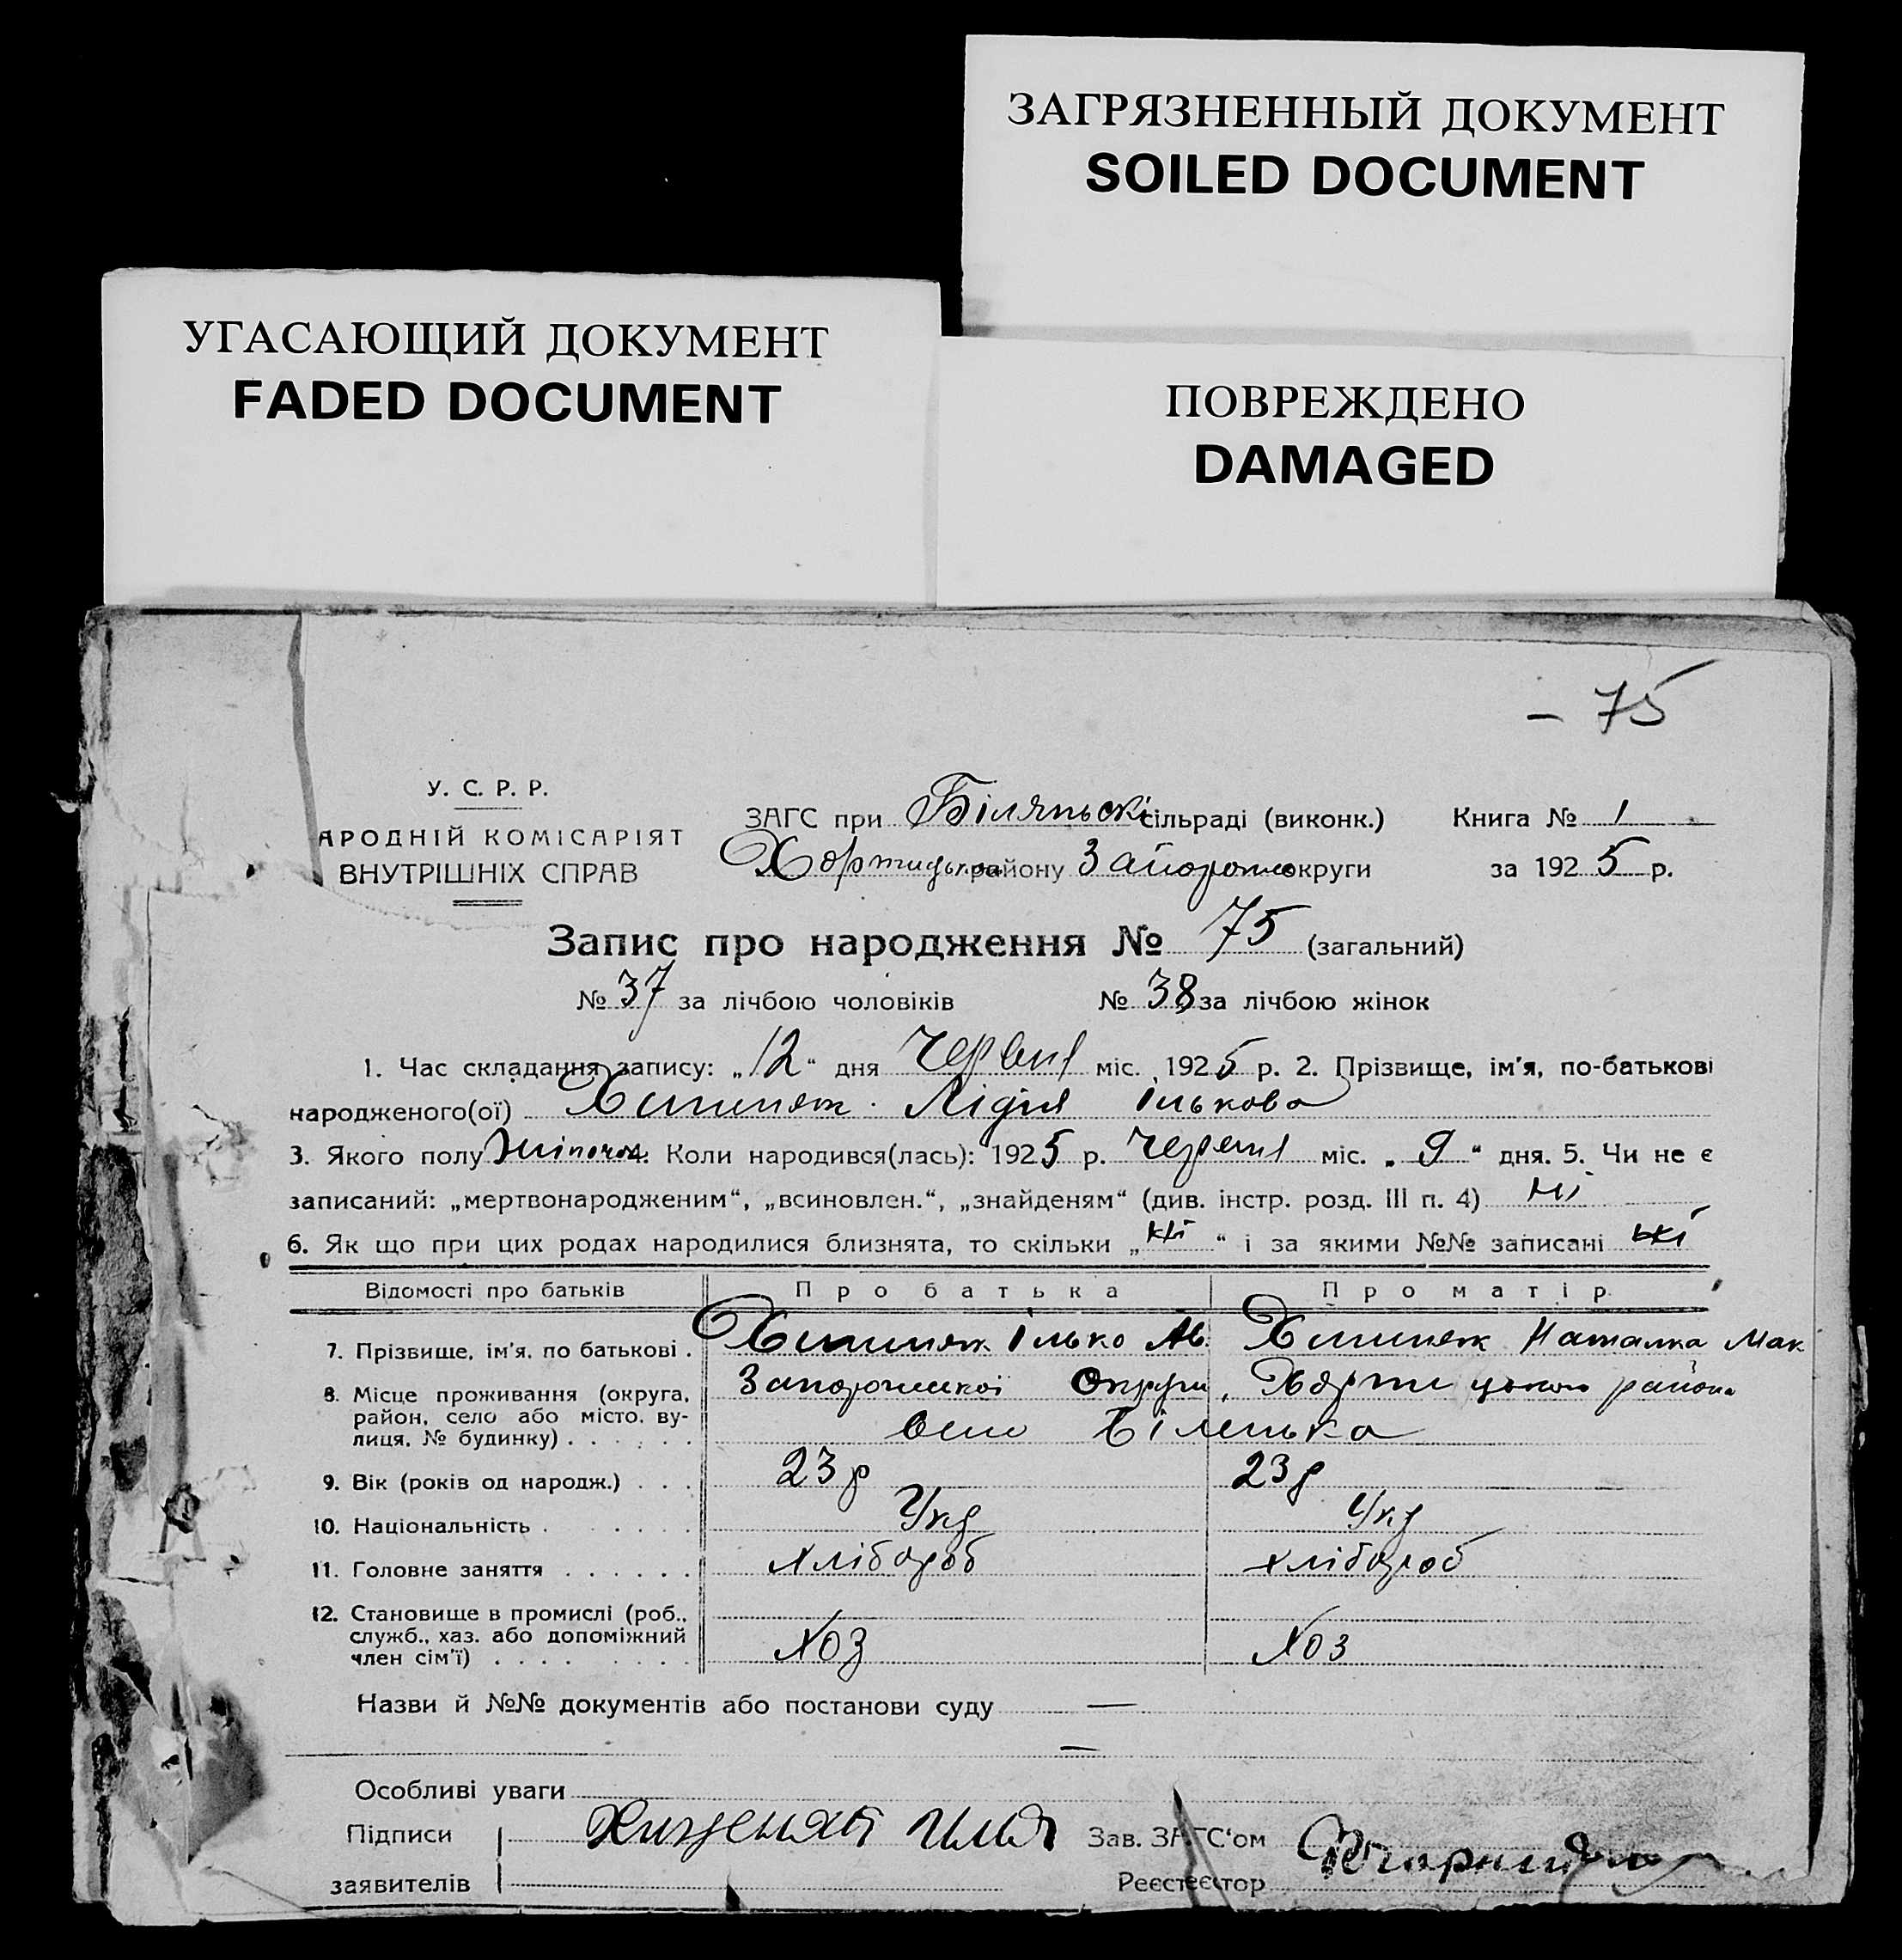 ЗАГРЯЗНЕННЫЙ ДОКУМЕНТ
SOILED DOCUMENT
УГАСАЮЩИЙ ДОКУМЕНТ
FADED DOCUMENT
ПОВРЕЖДЕНО
DAMAGED
– 75
У. С. Р. Р.
АРОДНІЙ КОМІСАРІЯТ
ВНУТРІШНІХ СПРАВ
ЗАГС при сільраді (виконк.) Книга № 1
району округи за 1925 р.
Запис про народження № 75 (загальний)
№ 37 за лічбою чоловіків № 38 за лічбою жінок
1. Час складання запису: „12“ дня червня міс. 1925 р. 2. Прізвище, ім'я, по-батькові
народженого(ої) Лідія Ількова
3. Якого полу Коли народився(лась): 1925 р. червня міс. „9“ дня. 5. Чи не є
записаний: „мертвонародженим“, „всиновлен.“, „знайденям“ (див. інстр. розд. III п. 4) ні
6. Як що при цих родах народилися близнята, то скільки „ні“ і за якими №№ записані ні
Відомості про батьків Про батька Про матір
7. Прізвище, ім'я, по батькові . Ілько Ав. Наталка Мак
8. Місце проживання (округа, Запорожської Округи, району
район, село або місто, ву-
лиця, № будинку) . . . . . . село Біленька
9. Вік (років од народж.) . . . 23 р 23 р
10. Національність . . . . . . Укр Укр
11. Головне заняття . . . . . . хлібороб хлібороб
12. Становище в промислі (роб.,
служб., хаз. або допоміжний
член сім'ї) . . . . . . . . . Хоз Хоз
Назви й №№ документів або постанови суду —
—
Особливі уваги
Підписи Зав. ЗАГС'ом
заявителів Реєстратор